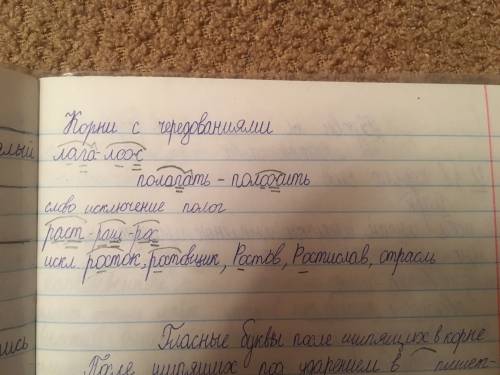 Корни с чередованиями
лага-лож
полагать - положить
слово исключение полог
раст-ращ-рос
искл. росток, ростовщик, Ростов, Ростислав, отрасль
Гласные буквы после шипящих в корне
После шипящих под ударением в пишет-